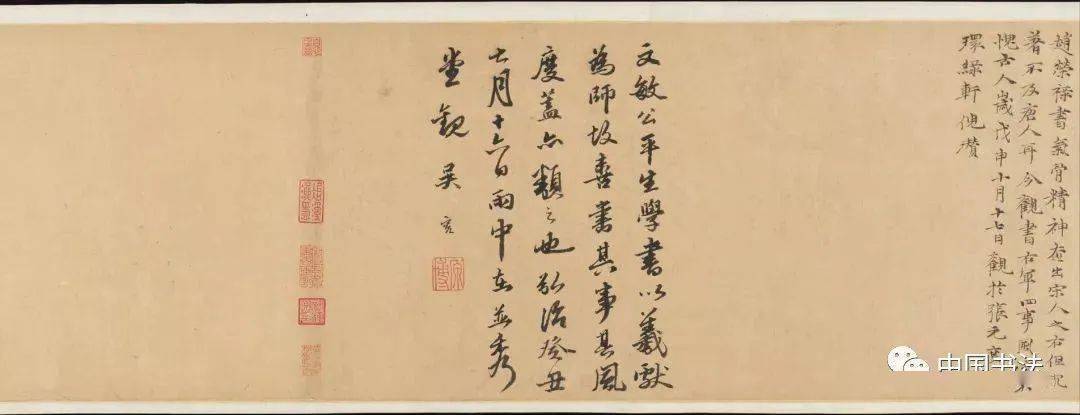 趙榮祿書氣骨精神出宋人之右但
著不及唐人耳今觀書右軍四事風流不
愧古人歲戊申十月十七日觀於張元
環綠軒倪瓚
文敏公平生學書以羲獻
為師故喜書其事其風
度蓋亦類之也弘治癸丑
七月十六日雨中在並秀
堂觀 吳寬
原博
中国书法